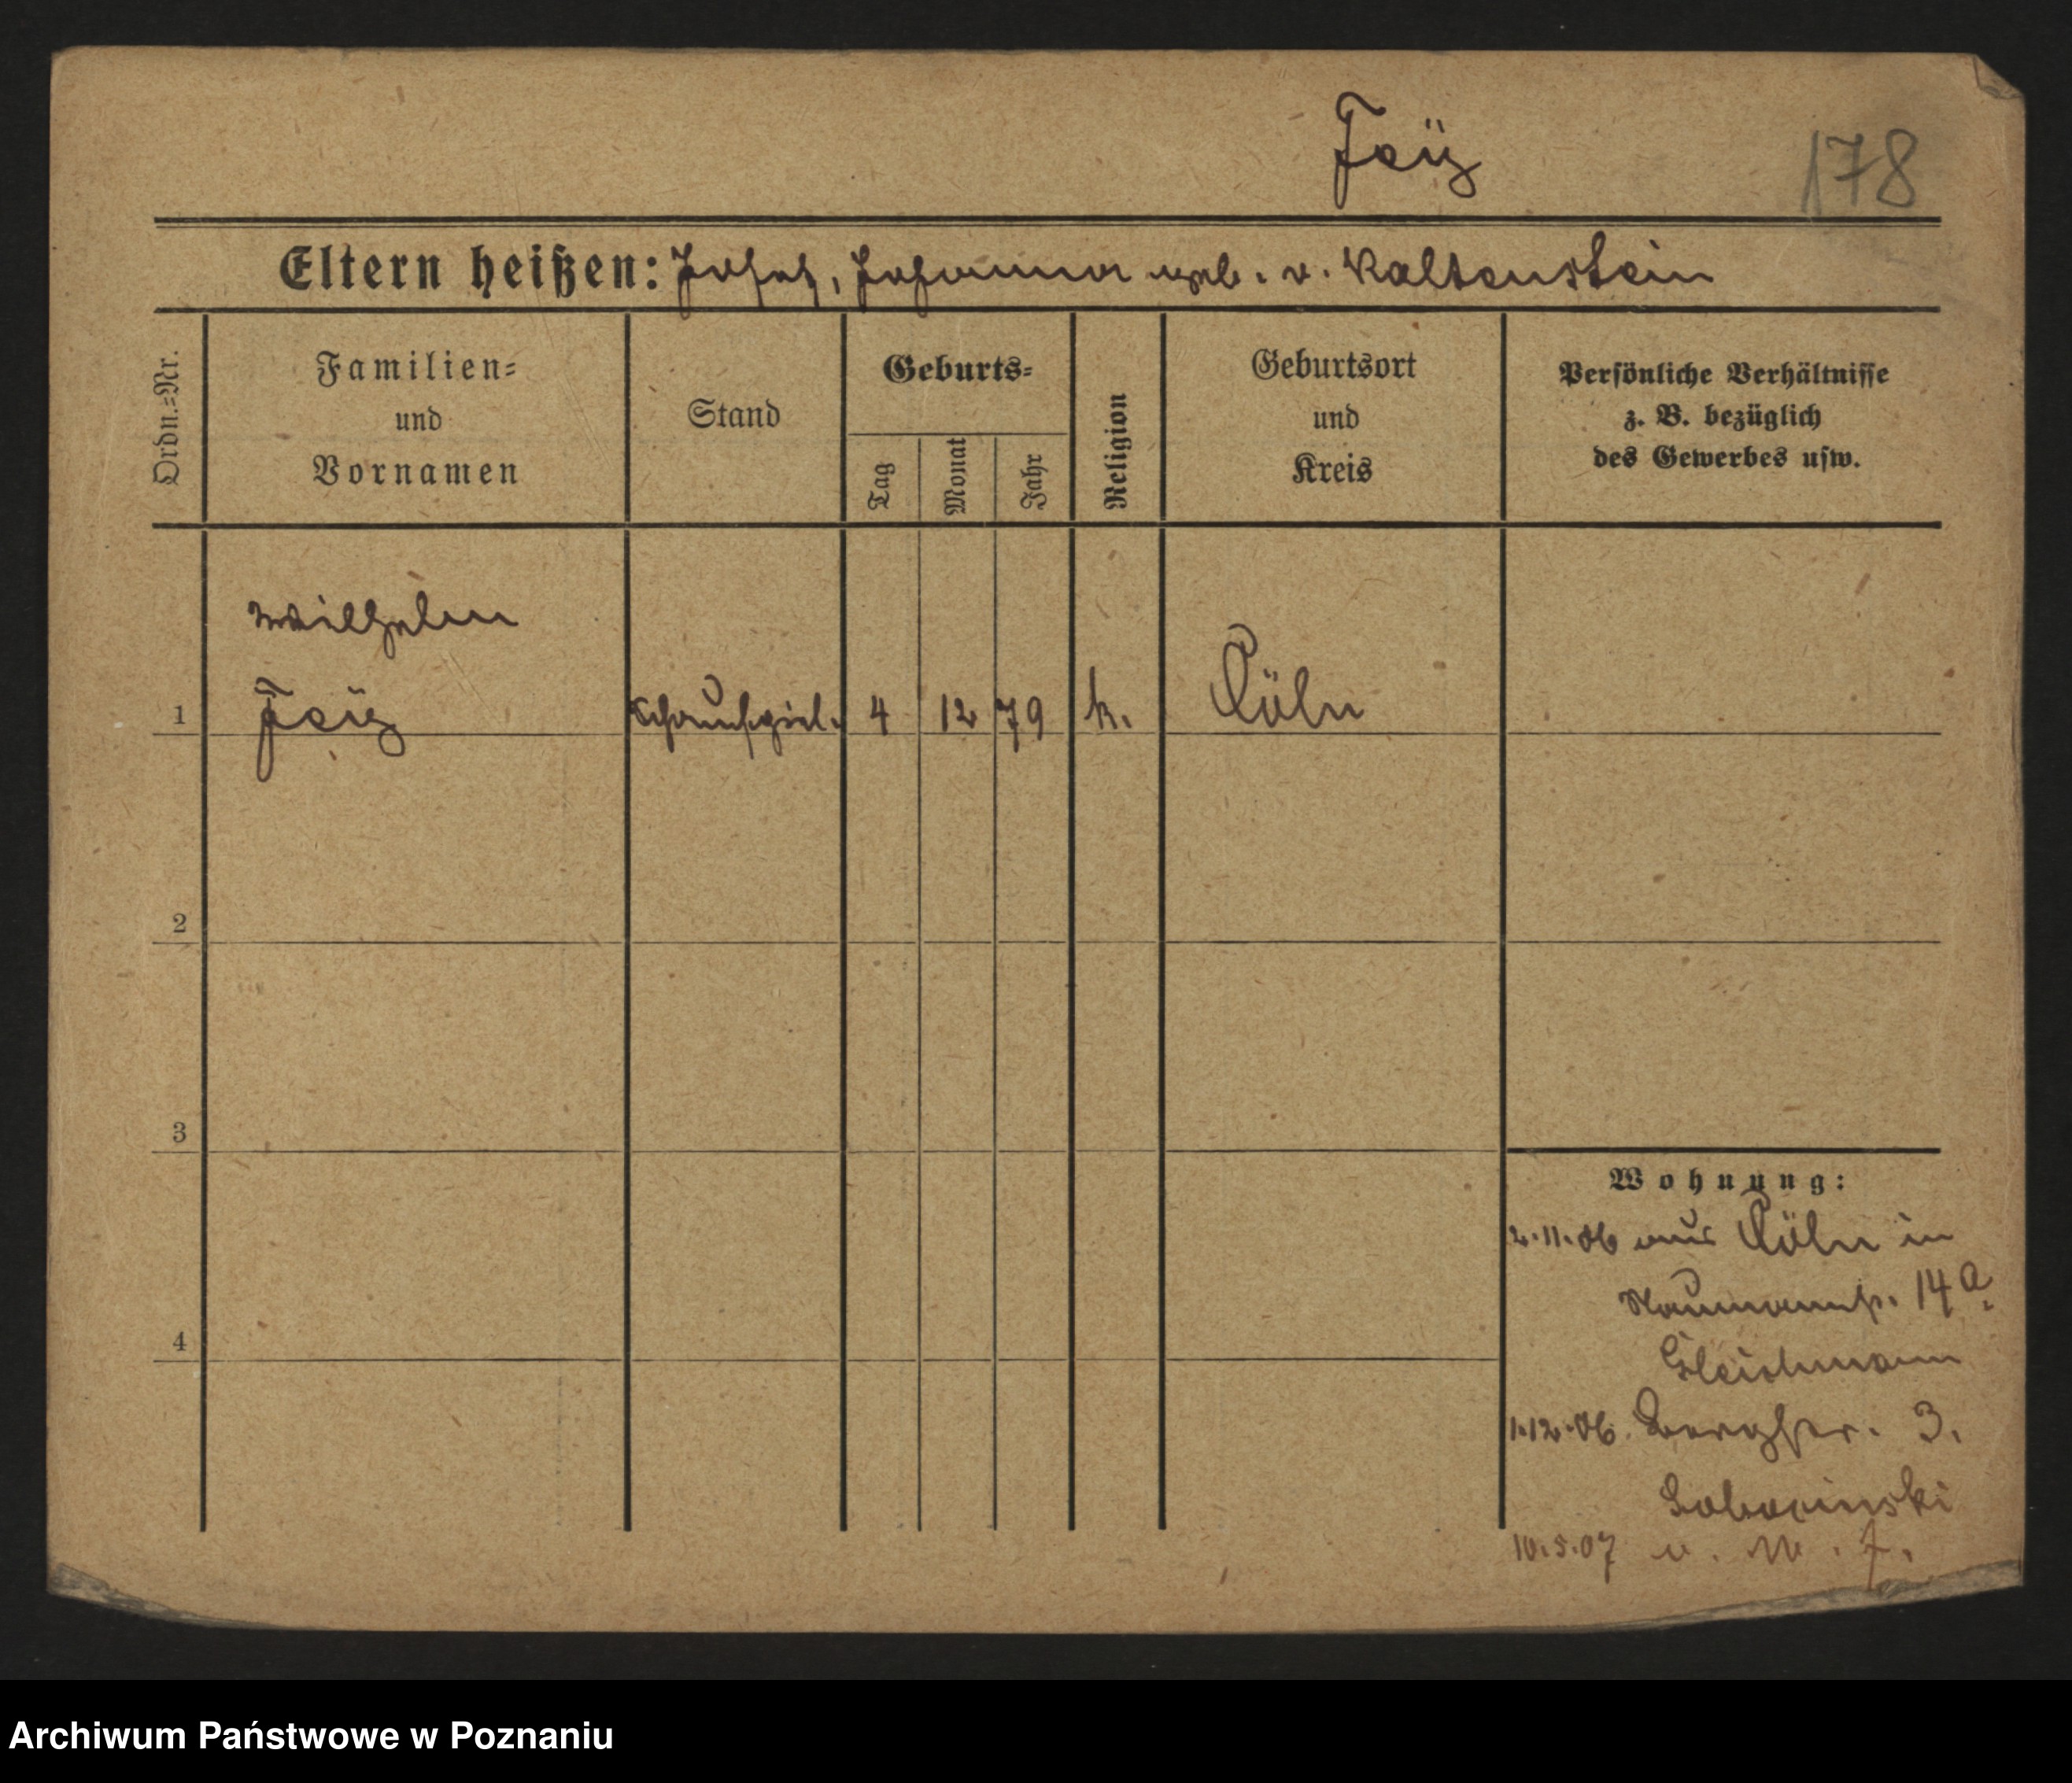 Feÿ
178
Eltern heißen: Josef, Johanna geb. v. Kaltenstein
Ordn.-Nr.
Familien-
und
Vornamen
Stand
Geburts-
Tag
Monat
Jahr
Religion
Geburtsort
und
Kreis
Persönliche Verhältnisse
z. B. bezüglich
des Gewerbes usw.
Wilhelm
1 Feÿ Schauspiel. 4 12 79 k. Cöln
2
3
4
Wohnung:
2.11.06 aus Cöln in
Naumannstr. 14a
Gleichmann
1.12.06. Bergstr. 3.
10.5.07
Archiwum Państwowe w Poznaniu